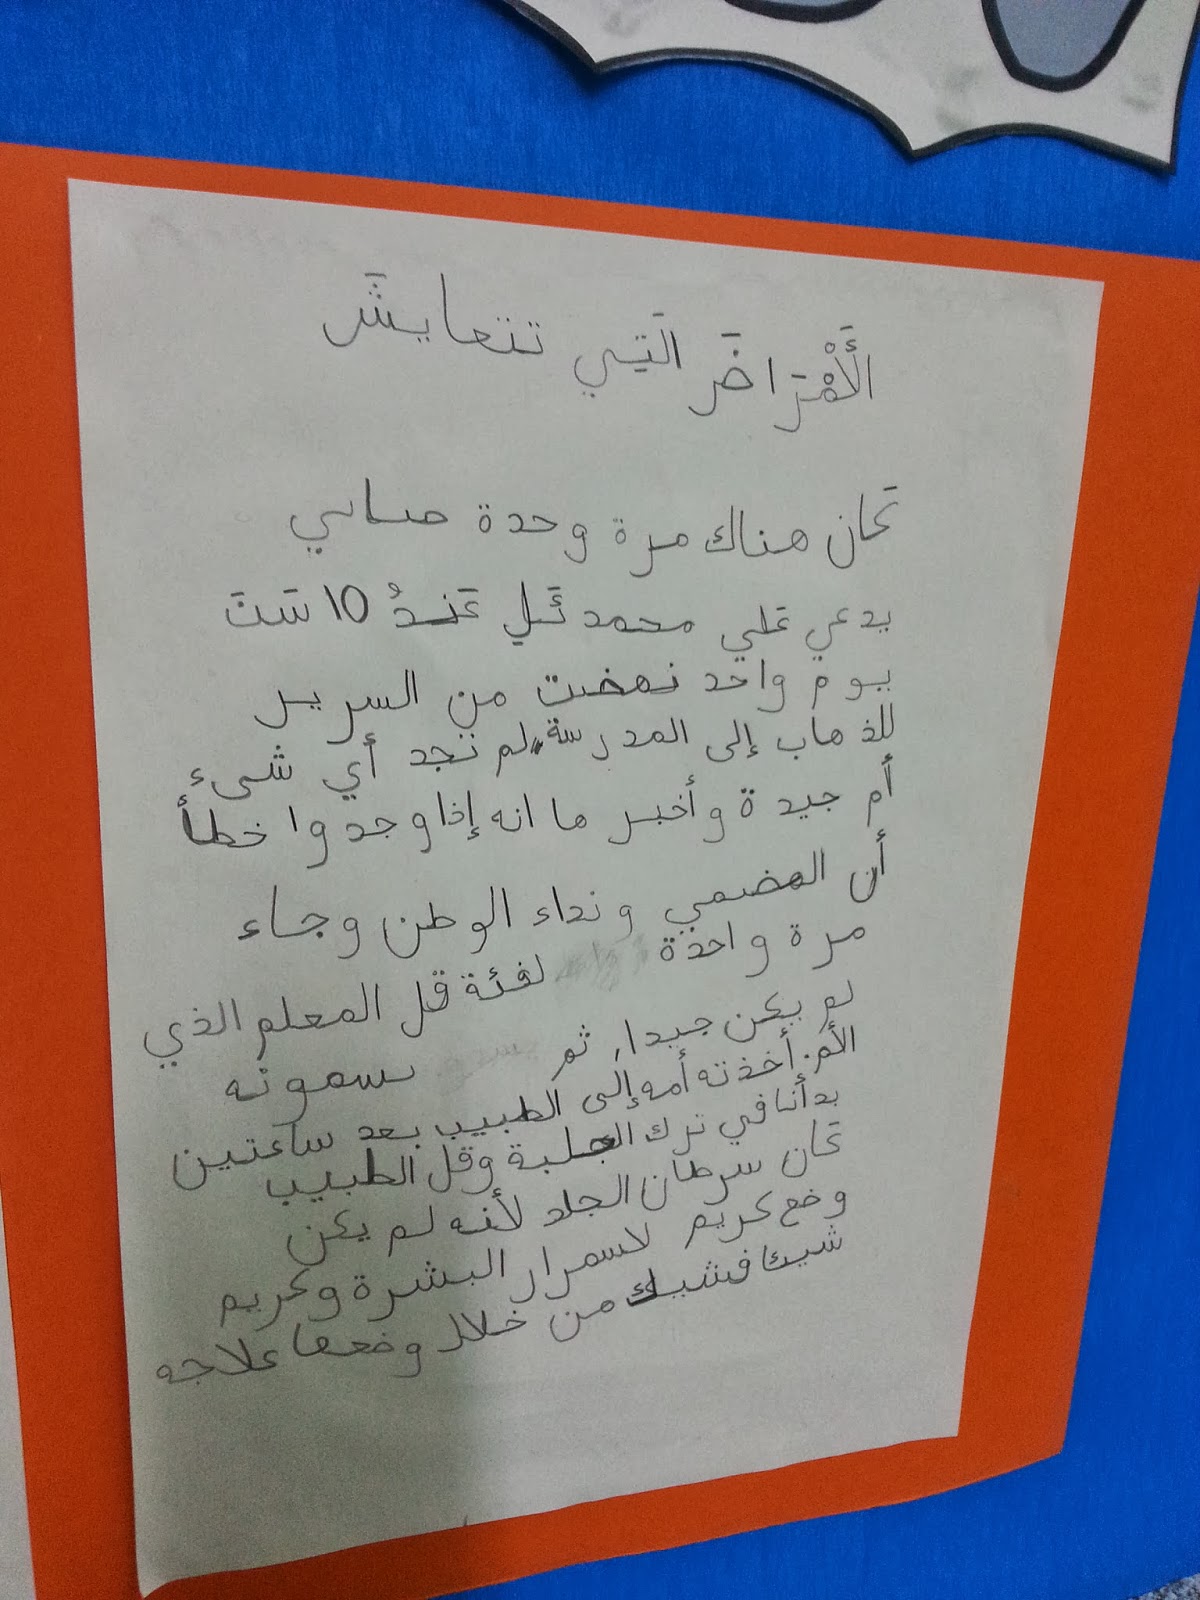 الَأَمْرَاضَ الَتِي تتعايشَ
كَان هناك مرة وحدة صابي
يدعي علي محمد عَندُ 10 سَتَ
يوم واحد نهضت من السرير
للذهاب إلى المدرسة، لم تجد أي شىء
أم جيدة وأخبر ها انه إذا وجدوا خطأ
أن الهضمي ونداء الوطن وجاء
مرة واحدة لفئة قل المعلم الذي
لم يكن جيدا, ثم يسمونه
الأم. أخذته أمه إلى الطبيب بعد ساعتين
بدأنا في ترك الجلبة وقل الطبيب
كان سرطان الجلد لأنه لم يكن
وضع كريم لاسمرار البشرة وكريم
شيئا فشيك من خلال وضعها علاجه